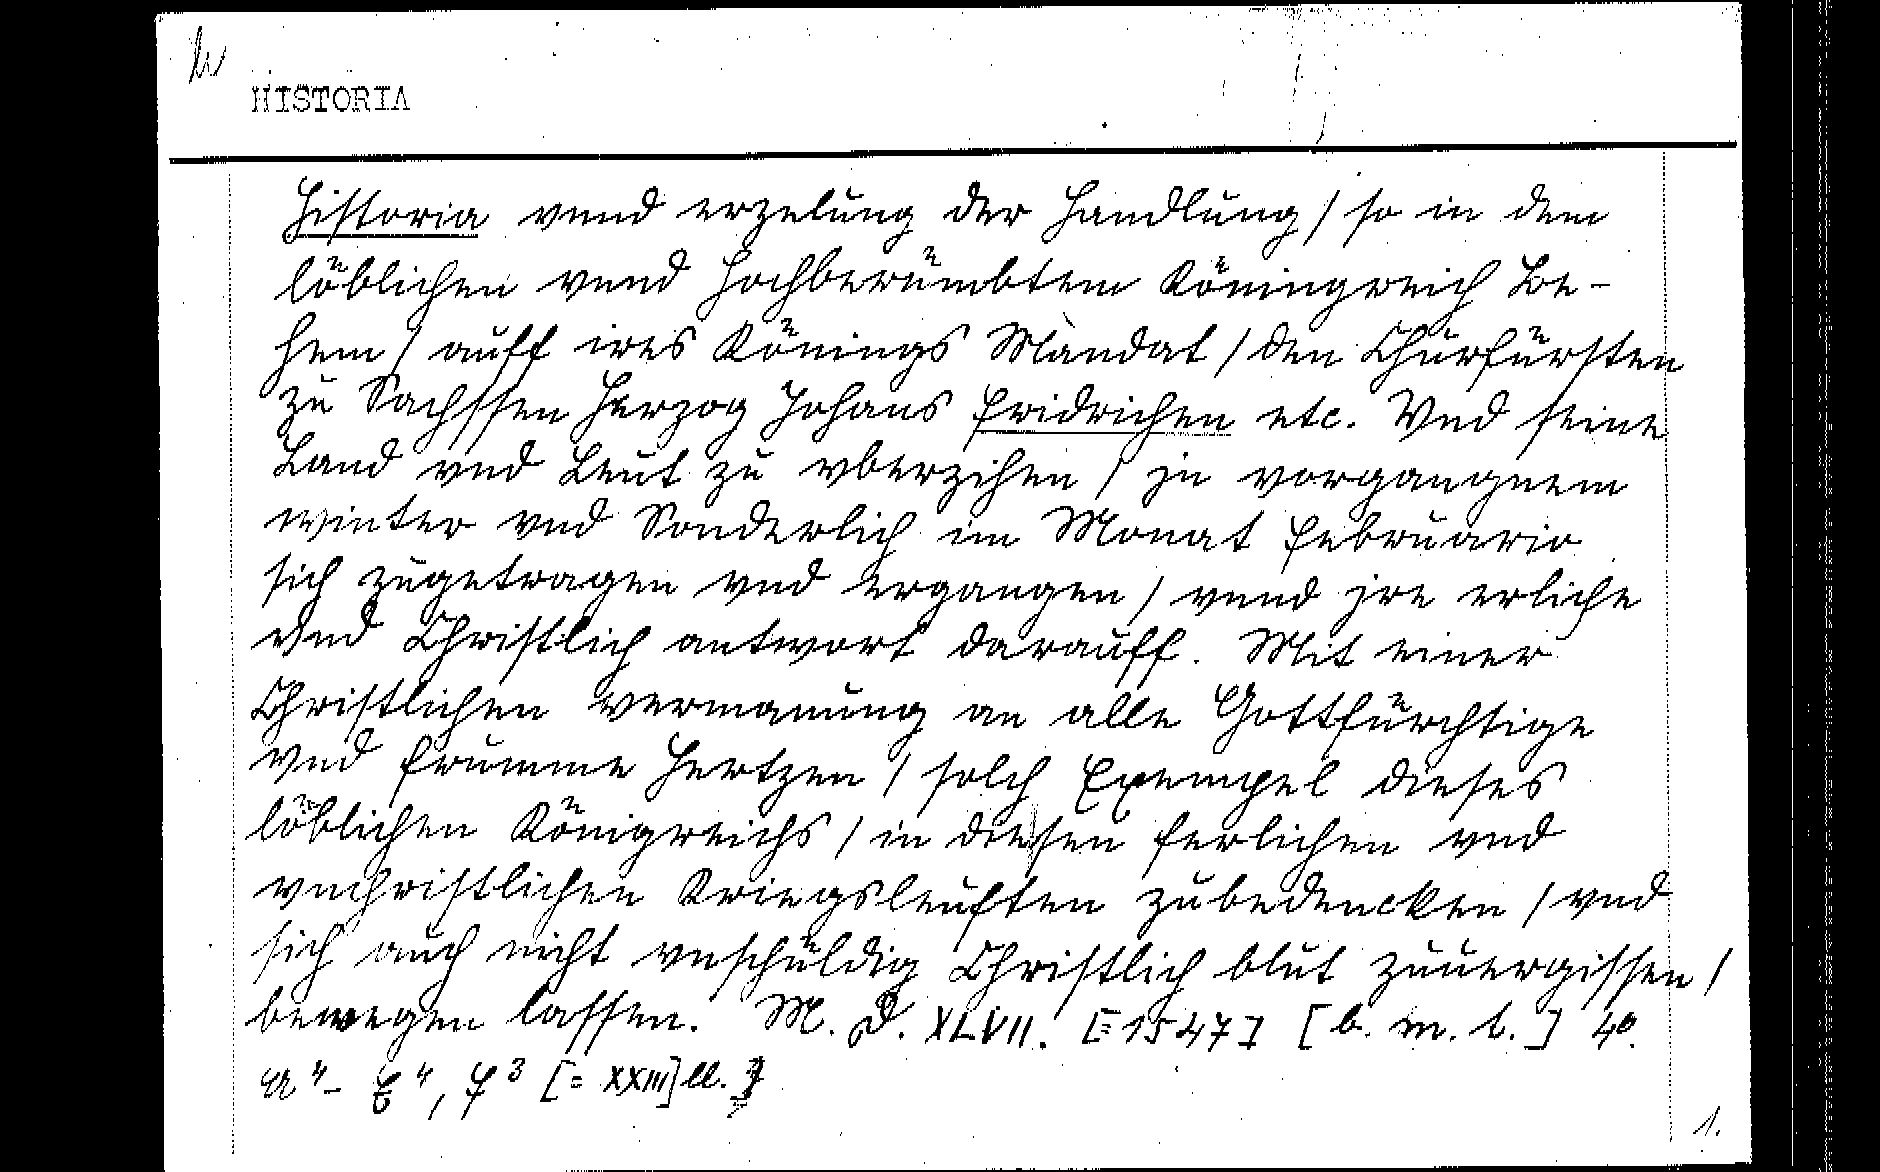 HISTORIA
Historia vnnd erzelung der Handlung / so in dem
löblichen vnnd Hochberümbtem Königreich Be-
hem / auff ires Königs Mandat / den Churfürsten
zu Sachssen Herzog Johans Fridrichen etc. Vnd seine
Land vnd Leut zu vberzihen / jn vorgangnem
winter vnd Sonderlich im Monat Februario
sich zugetragen vnd ergangen / vnnd jre erliche
vnd Christlich antwort darauff. Mit einer
Christlichen vermanung an alle Gottfürchtige
vnd frumme Hertzen / solch Exempel dieses
löblichen Königreichs / in diesen ferlichen vnd
vnchristlichen Kriegsleuften zubedencken / vnd
sich auch nicht vnschüldig Christlich blut zuuergissen /
bewegen lassen. M. D. XLVII. [=1547] [b. m. t.] 4°.
A⁴- E⁴, F³ [= XXIII] ll.]
1.